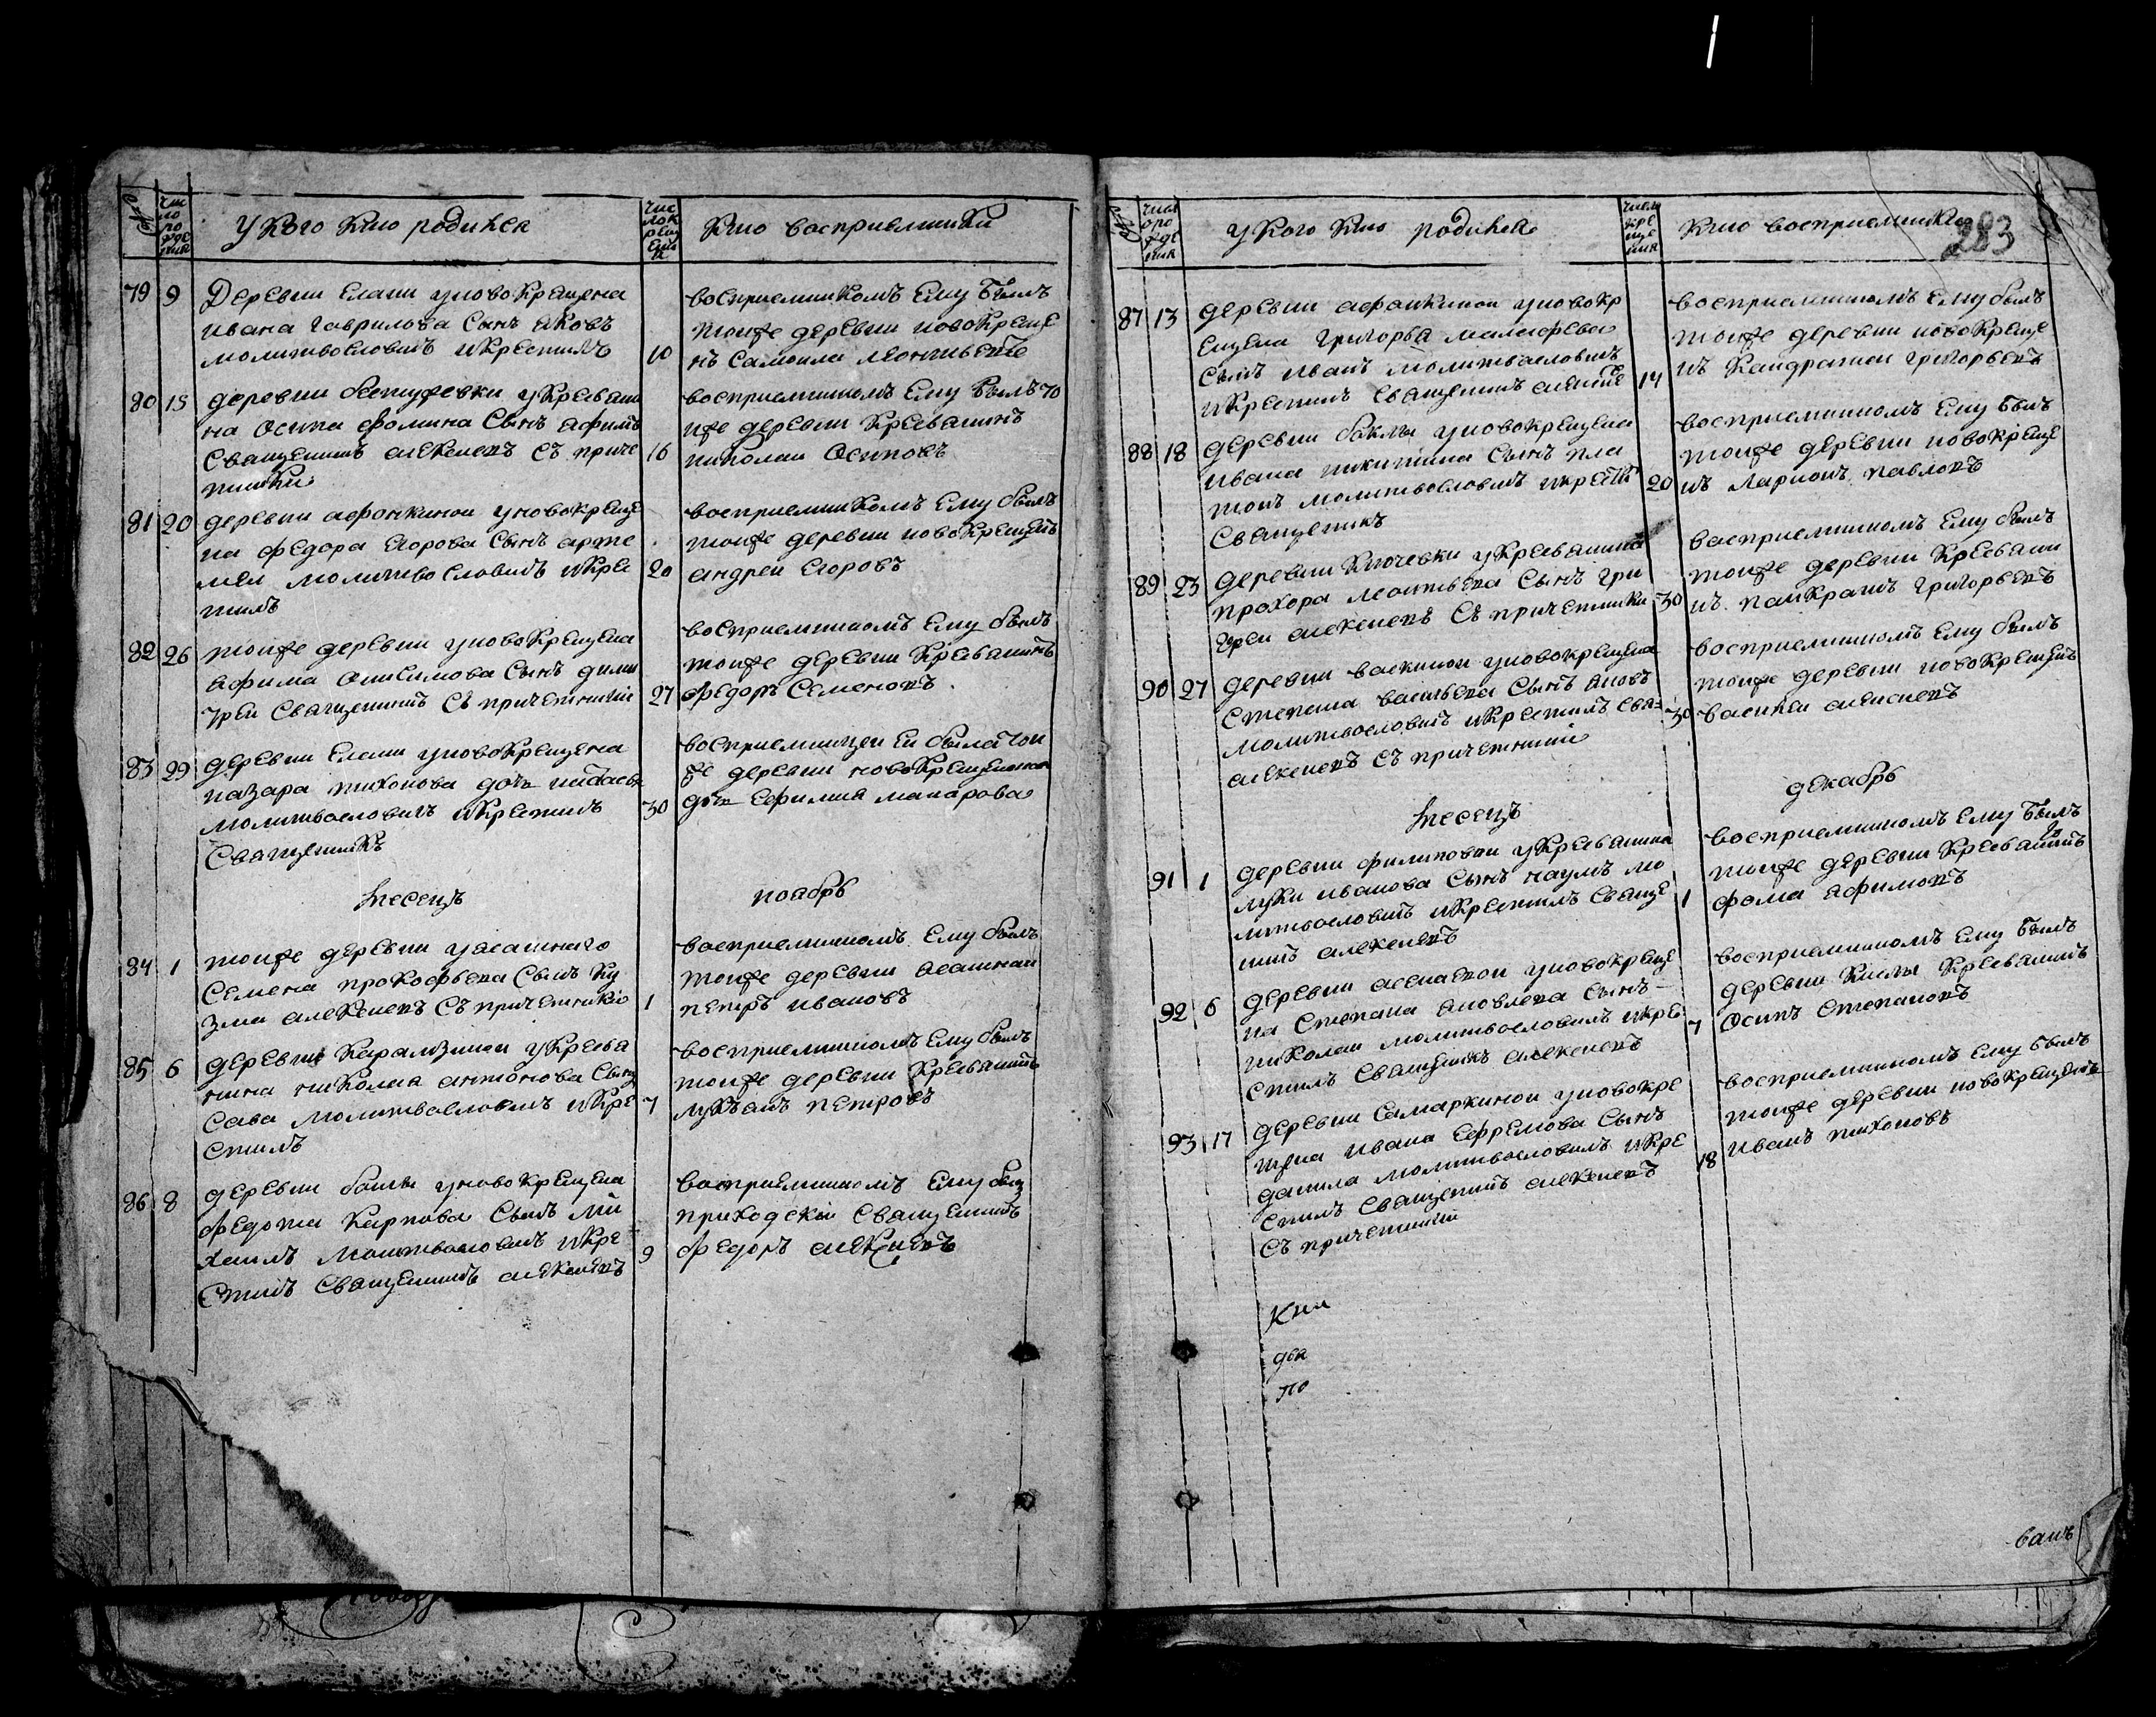 число рождения
У кого кто родился
число крещения
Кто восприемники
79 9 Деревни Елани уновокрещена
ивана гаврилова Сынъ яковъ
молитвословилъ икрестилъ 10
восприемникомъ Ему Былъ
тоиже деревни новокреще
нъ Самоила леонтьевъ
80 15 деревни бестужевки укрестьяни
на Осипа фомина Сынъ афимъ
Священникъ алексеевъ Съ приче 16
тники
восприемникомъ Ему Былъ то
иже деревни Крестьянинъ
николаи Осиповъ
81 20 деревни афонкинои уновокреще
на федора Егорова Сынъ арте
меи молитвословилъ икрес 20
тилъ
восприемникомъ Ему былъ
тоиже деревни новокрещенъ
андреи Егоровъ
82 26 тоиже деревни уновокрещена
афима анисимова Сынъ дими
треи Священникъ Съ причетники 27
восприемникомъ Ему былъ
тоиже деревни Крестьянинъ
федоръ Семеновъ
83 29 деревни Елани уновокрещена
назара тихонова дочь
молитвословилъ икрестилъ 30
Священникъ
восприемницеи Еи была тои
же деревни новокрещенная
дочь Ефимия макарова
месецъ ноябрь
84 1 тоиже деревни уясашнаго
Семена прокофьева Сынъ Ку
зма алексеевъ Съ причетники 1
восприемникомъ Ему былъ
тоиже деревни ясашнаи
петръ ивановъ
85 6 деревни Карамзинои укрестья
нина николая антонова Сынъ
Сава молитвословилъ икре 7
стилъ
восприемникомъ Ему былъ
тоиже деревни Крестьянинъ
лукъянъ петровъ
86 8 деревни уновокрещена
федота Карпова Сынъ ми
хаилъ молитвословилъ икре 9
стилъ Священникъ алексеевъ
восприемникомъ Ему былъ
приходскои Священникъ
федоръ алексеевъ
283
число рождения
у кого кто родился
число крещения
Кто восприемники
87 13 деревни афонкинои уновокр
ещена григорья малафеева
Сынъ иванъ молитвословилъ
икрестилъ Священникъ алексее 14
восприемникомъ Ему былъ
тоиже деревни новокреще
нъ Кандратеи григорьевъ
88 18 деревни уновокрещена
ивана никитина Сынъ пла
тонъ молитвословилъ икрести 20
Священникъ
восприемникомъ Ему былъ
тоиже деревни новокреще
нъ Ларионъ павловъ
89 23 деревни Ключевки укрестьянина
прохора леонтьева Сынъ гри
гореи алексеевъ Съ причетники 30
восприемникомъ Ему былъ
тоиже деревни Крестьяни
нъ панкратъ григорьевъ
90 27 деревни васкинои уновокрещена
Степана васильева Сынъ яковъ
молитвословилъ икрестилъ Свя= 30
алексеевъ Съ причетники
восприемникомъ Ему былъ
тоиже деревни новокрещенъ
василеи алексеевъ
месецъ декабрь
91 1 деревни филиповки укрестьянина
луки иванова Сынъ наумъ мо
литвословилъ икрестилъ Свяще 1
никъ алексеевъ
восприемникомъ Ему былъ
тоиже деревни Крестьянинъ
фома афимовъ
92 6 деревни уновокреще
на Степана яковлева Сынъ
николаи молитвословилъ икре 7
стилъ Священникъ алексеевъ
восприемникомъ Ему былъ
деревни Крестьянинъ
Осипъ Степановъ
93 17 деревни Самаркинои уновокре
щена ивана Ефремова Сынъ
данила молитвословилъ икре 18
стилъ Священникъ алексеевъ
Съ причетники
восприемникомъ Ему былъ
тоиже деревни новокрещенъ
иванъ тихоновъ
два
по
ванъ